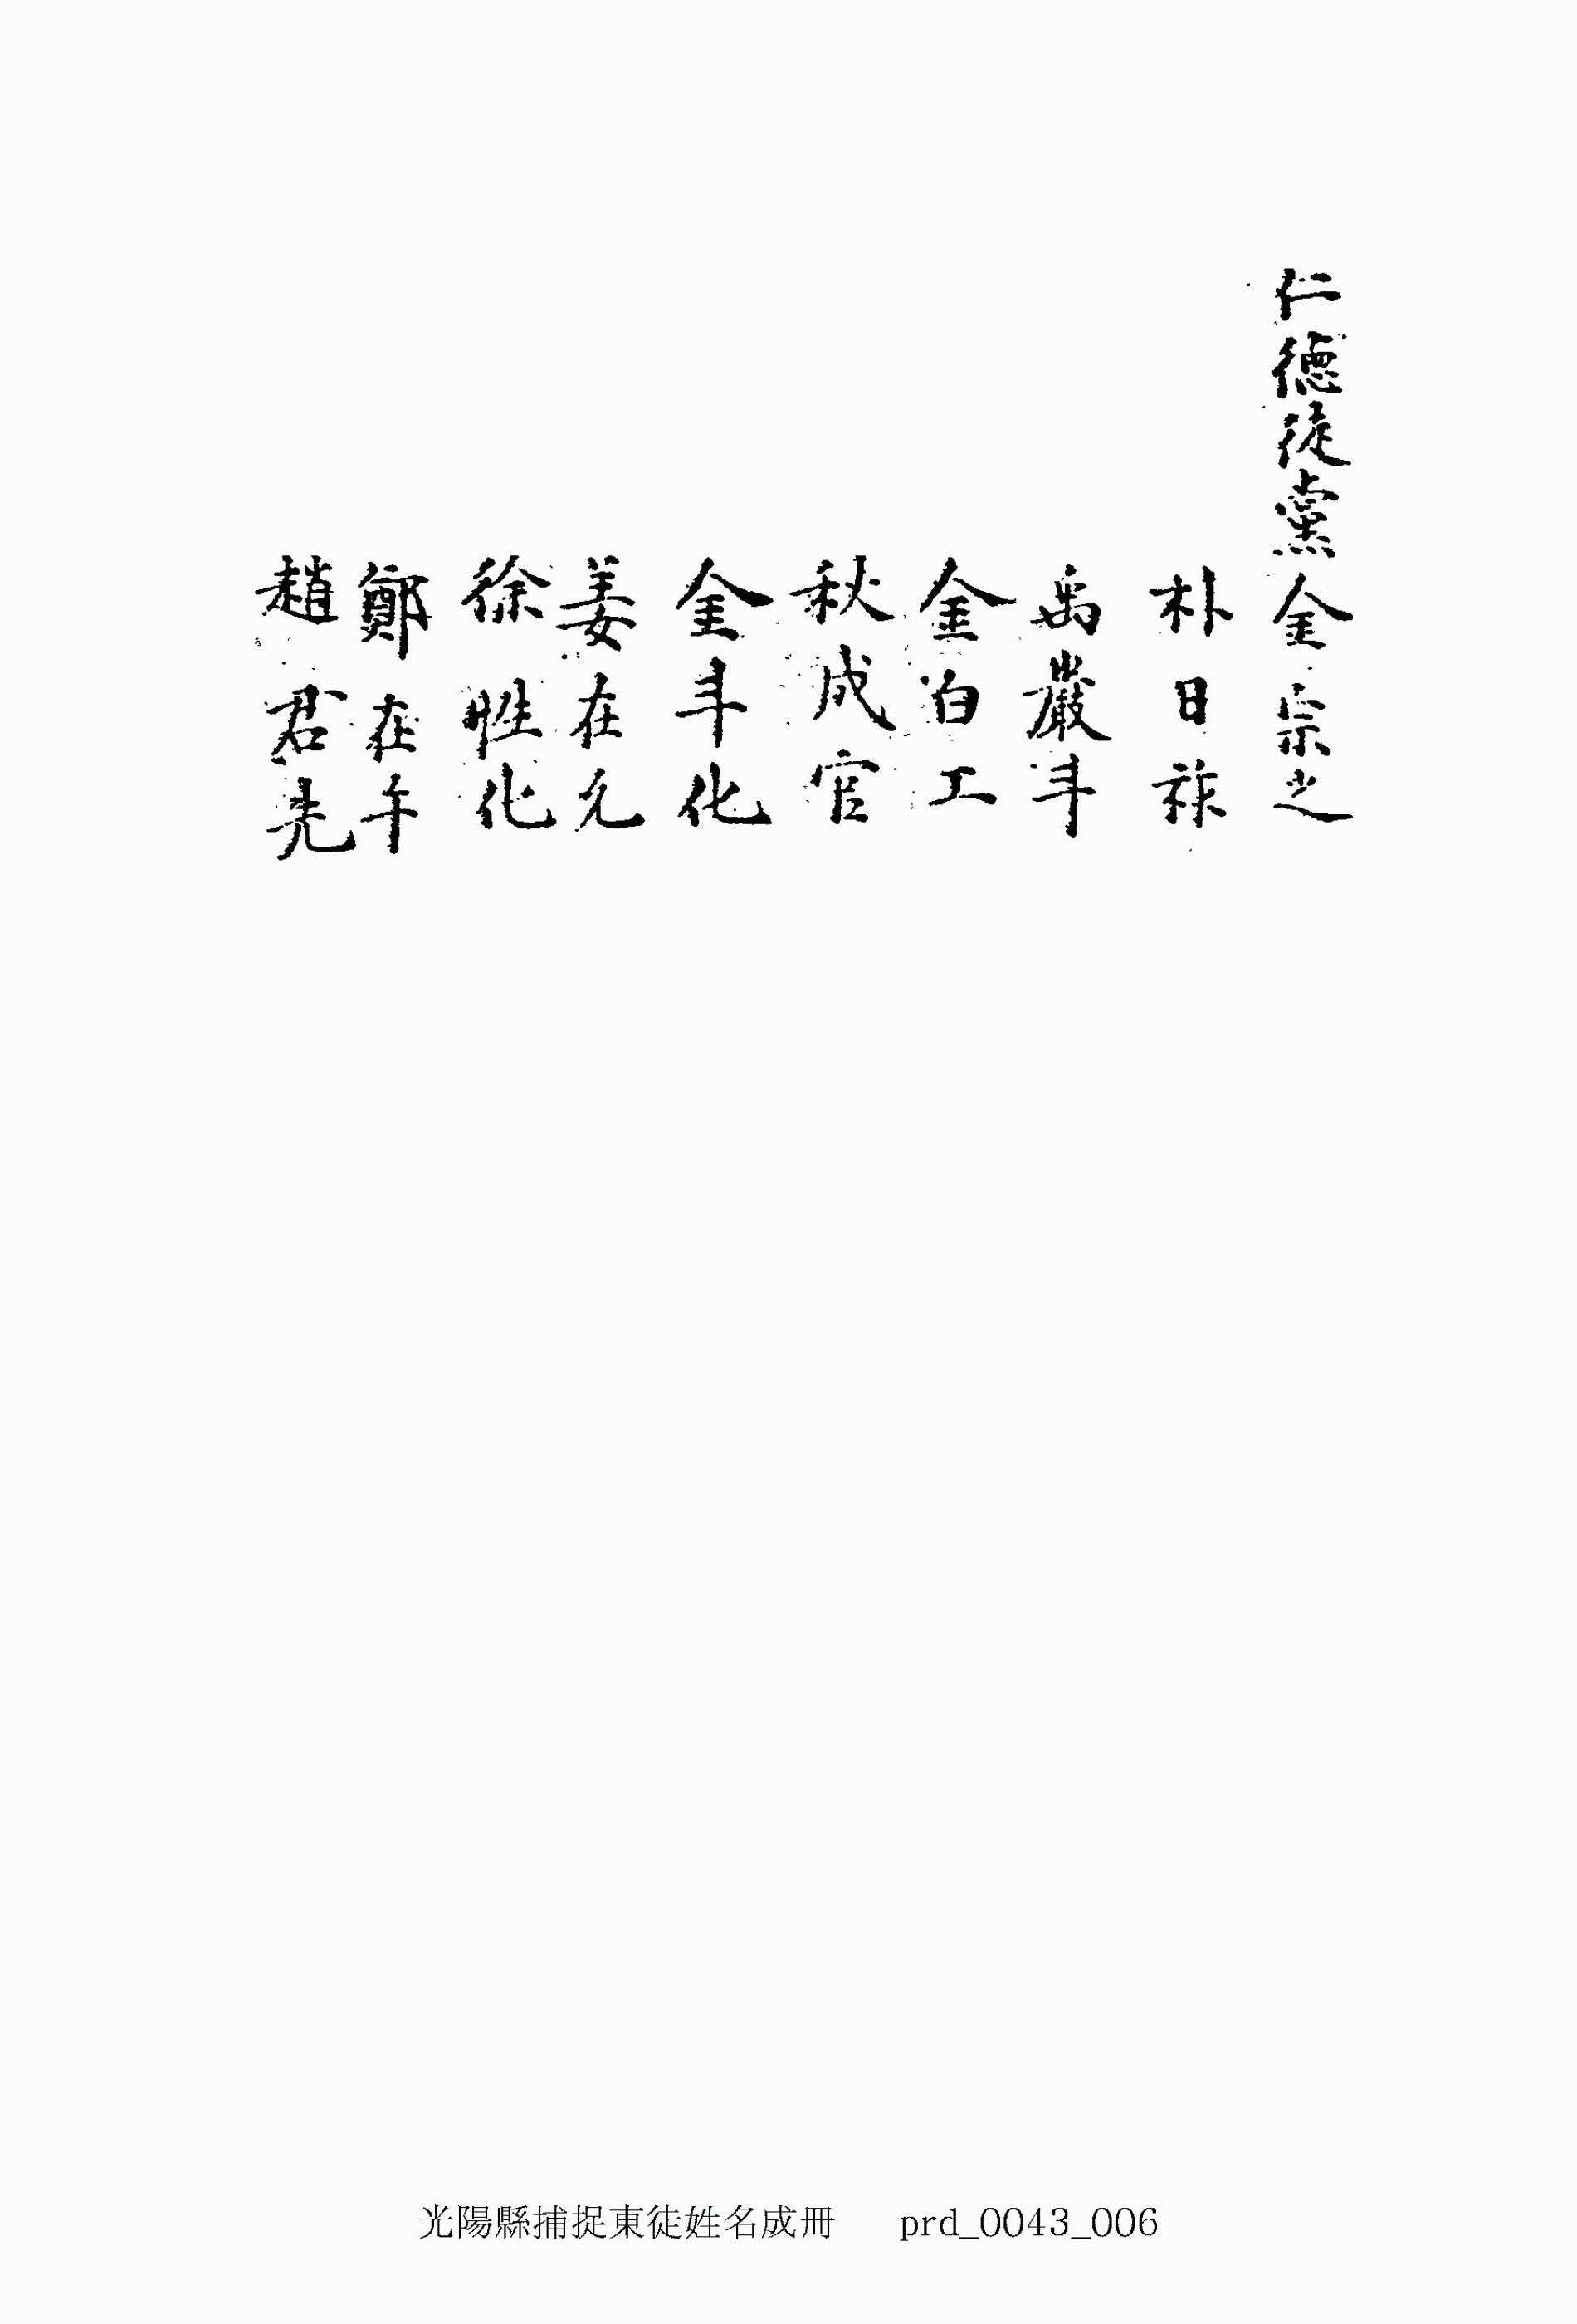 仁德徒黨金宗之
朴日祚
禹巖斗
金白工
秋成官
金斗化
姜在允
徐性化
鄭在午
趙君先
光陽縣捕捉東徒姓名成冊 prd_0043_006